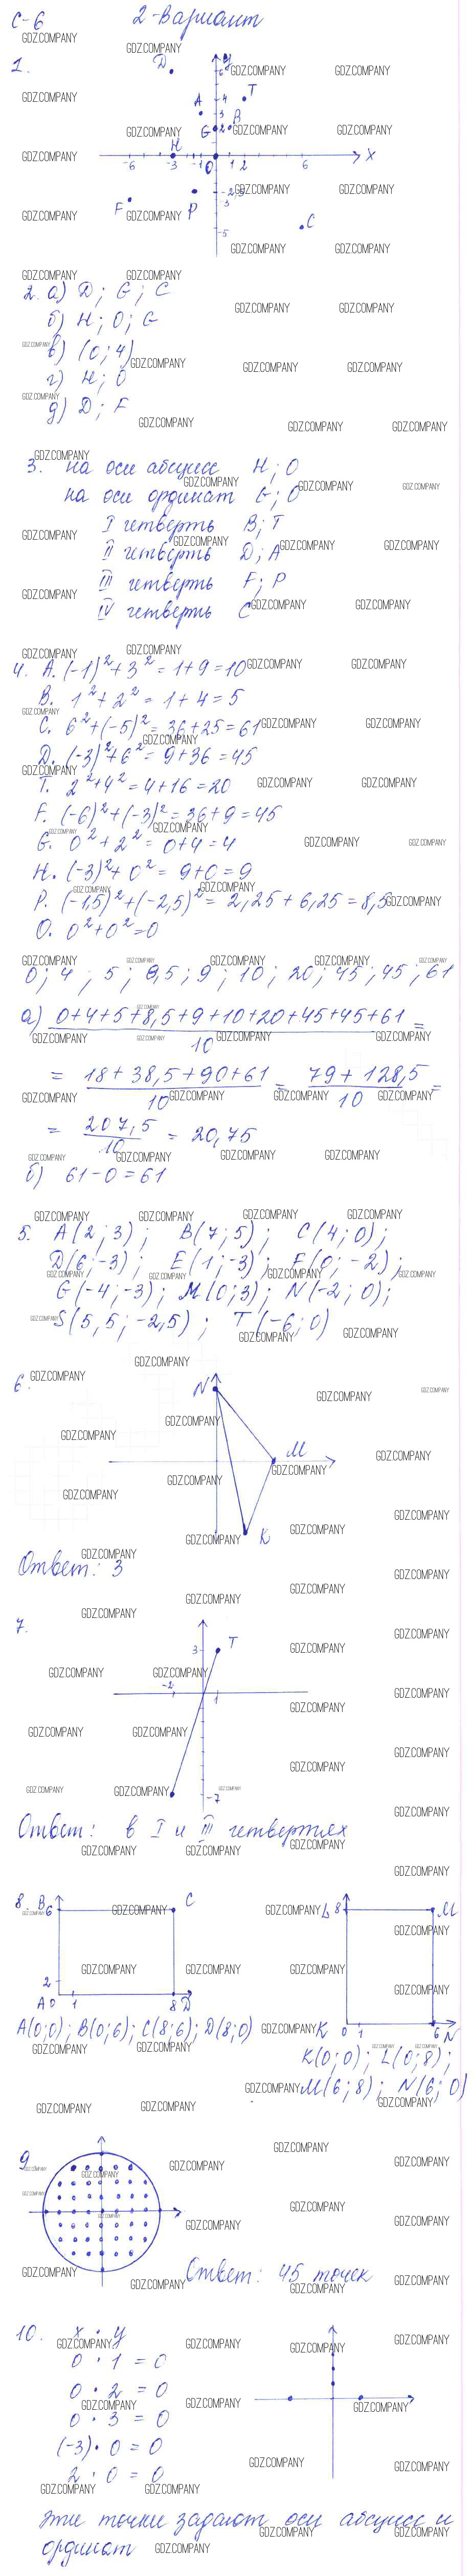 С-6 2-вариант
1.
D 6 y
4 T
A 3
G 2 B
H
-6 -3 -1 O 1 2 6 X
P -2,5
F -3
-5 C
2. а) D; G; C
б) H; O; G
в) (0; 4)
г) H; O
д) D; F
3. на оси абсцисс H; O
на оси ординат G; O
I четверть B; T
II четверть D; A
III четверть F; P
IV четверть C
4. A. (-1)² + 3² = 1+9=10
B. 1² + 2² = 1+4=5
C. 6² + (-5)² = 36+25=61
D. (-3)² + 6² = 9+36=45
T. 2² + 4² = 4+16=20
F. (-6)² + (-3)² = 36+9=45
G. 0² + 2² = 0+4=4
H. (-3)² + 0² = 9+0=9
P. (-1,5)² + (-2,5)² = 2,25 + 6,25 = 8,5
O. 0² + 0² = 0
0; 4; 5; 8,5; 9; 10; 20; 45; 45; 61
а) 0+4+5+8,5+9+10+20+45+45+61 =
10
= 18+38,5+90+61 = 79+128,5 =
10 10
= 207,5 = 20,75
10
б) 61-0=61
5. A(2; 3); B(7; 5); C(4; 0);
D(6; -3); E(1; -3); F(0; -2);
G(-4; -3); M(0; 3); N(-2; 0);
S(5,5; -2,5); T(-6; 0)
6. N
M
K
Ответ: 3
7.
3 T
-2 1
-7
Ответ: в I и III четвертях
8. B 6 C L 8 M
2
A 0 1 8 D K 0 1 6 N
A(0;0); B(0;6); C(8;6); D(8;0)
K(0;0); L(0;8);
M(6;8); N(6;0)
9
Ответ: 45 точек
10. x · y
0 · 1 = 0
0 · 2 = 0
0 · 3 = 0
(-3) · 0 = 0
2 · 0 = 0
Эти точки задают оси абсцисс и
ординат
GDZ.COMPANY